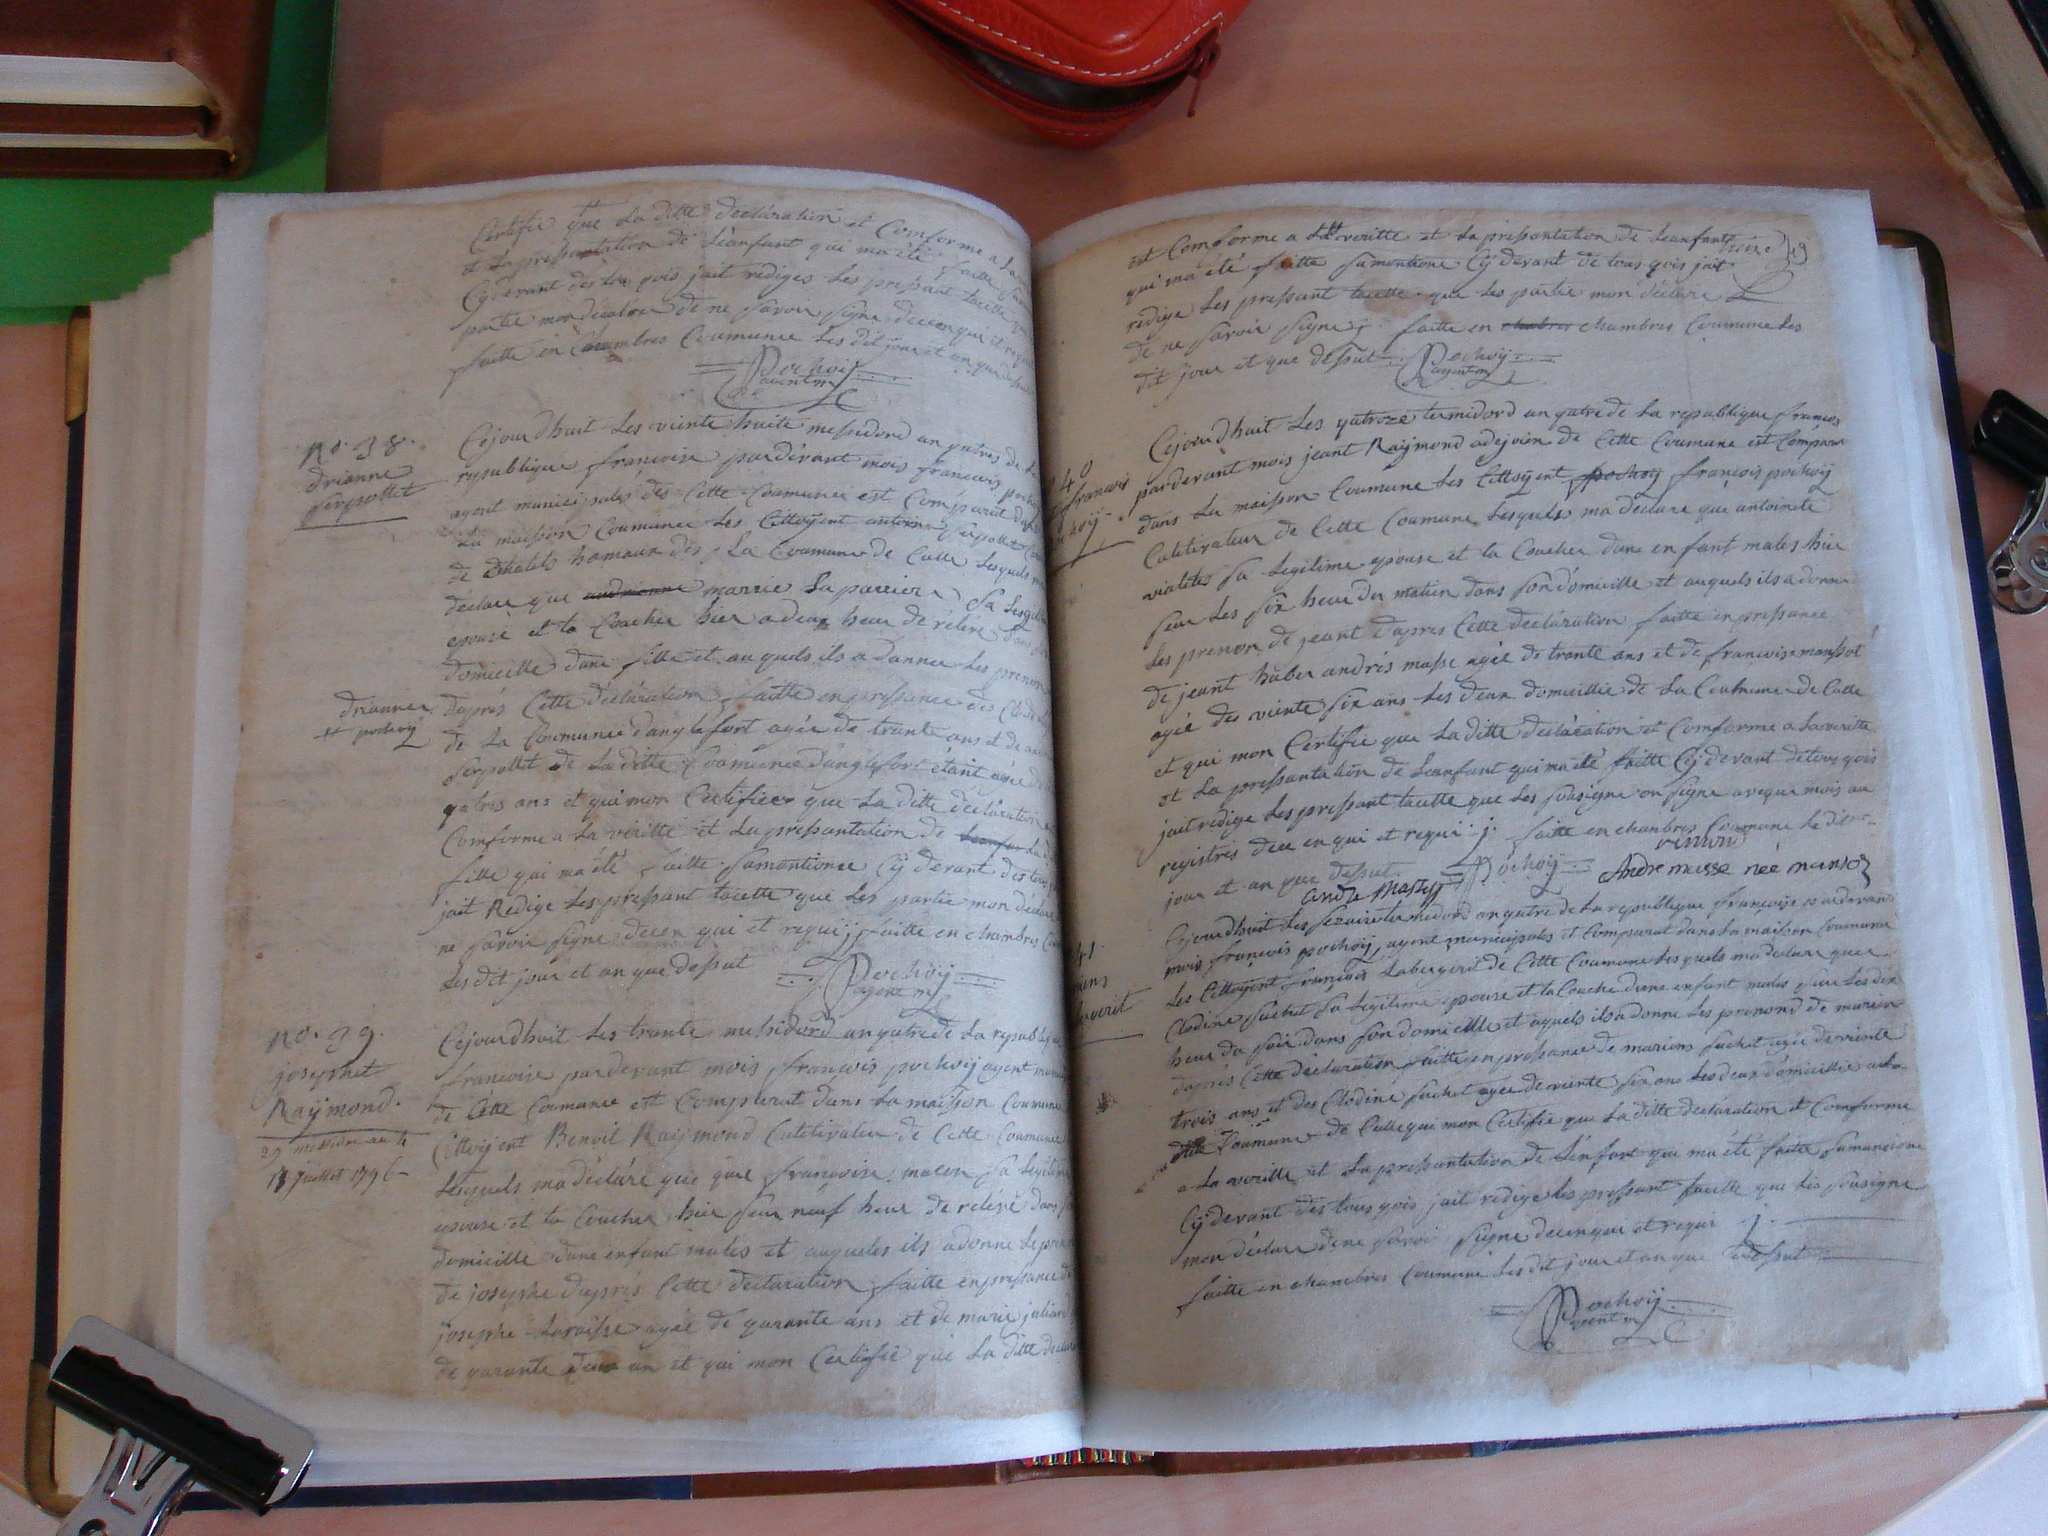 Certifie que La ditte declaration et Comforme a La
et La pressantation de Leanfant qui ma été faitte
Cy devant des tou qois jait rediges Les pressant tacette
partie mon declare de ne savoir signe decen qui et requi
faitte en Chambres Coumunee Les dit jour et an que dessu
Pochoij
agent m
No. 38.
drianne
serpollet
Cejourdhuit Les viente huite messidord an qatres de La
republique francoise pardevant mois francois pochoij
agent municipales des Cette Coumunee est Comparut dans
La maisson Coumunee Les Cittoyent antoine Serpollet
de Chatels hamaux des La Coumune de Culle Lesquels ma
declare que marrie La parrier Sa Legitime
epouse et ta Coucher hier a deux heur de relevé dans son
domicille dune fille et auquels ils a donnee Les prenon
drianne
et pochoij
daprés Cette declaration faitte en pressance des
de La Coumunee danglefort agée de trante ans et de
Serpollet de La ditte Coumunee danglefort étant agée de
qatres ans et qui mon Certifier que La ditte declaration
Comforme a La veritte et La pressantation de Leanfan La
fille qui ma été faitte samantionee Cy devant des tous
jait Redige Les pressant tacette que Les partie mon declare
ne savoir signe decen qui et requij faitte en chambres
Les dit jour et an que dessut
Pochoij
agent m
No. 39.
josephet
Raijmond.
29 messidor an 4
17 juillet 1796
Cejourdhuit Les trante messidord an qatre de La republique
francoise pardevant mois francois pochoij agent
de Cette Coumunee est Comparut dans La maisson Coumune
Cittoyent Benoit Raijmond Cultivateur de Cette Coumune
Lesquels ma declaré que que francoise maten sa Legitime
epouse et ta Coucher hier seur neuf heur de relevé dans
domicille dune enfant males et auqueles ils a donne Le
de josephe daprés Cette declaration faitte en pressance de
josephe Laraisse agée de qarante ans et de marie
de qarante deux an et qui mon Certifié que La ditte
est Comforme a Laditte veritte et La pressantation de Leanfant
qui ma été faitte samantione Cy devant de tous qois jait
redige Les pressant tacette que Les partie mon declare
de ne savoir signe j. faitte en chambres Coumune Les
dit jour et que dessut
Pochoij
agent m
40
francois
Cejourdhuit Les qatroze termidord an qatre de La republique francois
pardevant mois jeant Raijmond adejoien de Cette Coumune est Comparu
dans La maisson Coumune Les Cittoyent pochoij françois pochoij
Cultivateur de Cette Coumune Lesquels ma declare que antoinete
vialetes sa Legitime epouse et ta Coucher dune enfant males hier
seur Les six heur du matien dans son domicille et auquels ils a donne
Les prenon de jeant daprés Cette declaration faitte en pressance
de jeant huber andrés masse agée de trante ans et de francoise manssot
agée des viente six ans Les deux domicillie de La Coumune de Culle
et qui mon Certifie que La ditte declaration et Comforme a La veritte
et La pressantation de Leanfant qui ma été faitte Cy devant de tous qois
jait redige Les pressant tacette que Les sousigne on signe aveque mois au
registres dece en qui et requi: j. faitte en chambres Coumune Le dit
jour et an que dessut
Pochoij
André massse née manso
41
Cejourdhuit Les sezaire termidord an qatre de La republique francoise pardevan
mois francois pochoij agent municipales et Comparut dans La maisson Coumune
Les Cittoyent francois Labergerit de Cette Coumune Lesquels ma declare que
Clodine suchet sa Legitime epouse et ta Couche dune enfant males seur Les dix
heur du soir dans son domicille et aquels ils a donne Les prenond de marien
daprés Cette declaration faitte en pressance de mariens suchet agée de viente
trois ans et des Clodine suchet agee de viente six ans Les deux domicillie
ditte Coumune de Culle qui mon Certifie que La ditte declaration et Comforme
a La veritte et La pressantation de Lenfant qui ma été faitte samancione
Cy devant des tous qois jait redige Les pressant tacette que Les sousigne
mon declare de ne savoir signe decen qui et requi j.
faitte en chambres Coumune Les dit jour et an que dessut
Pochoij
agent m